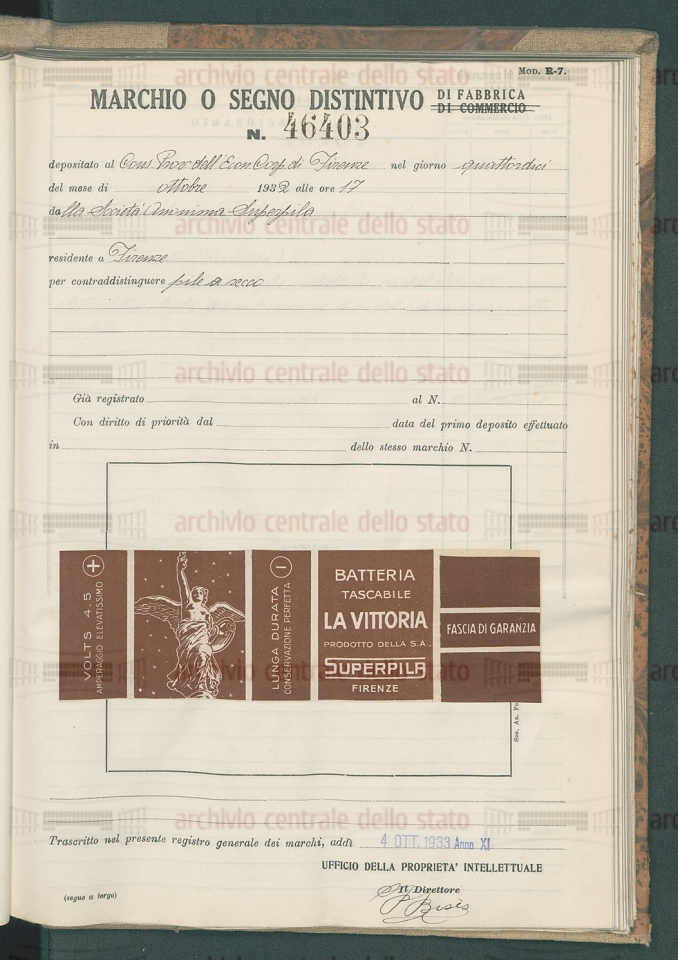 Mod. R-7.
MARCHIO O SEGNO DISTINTIVO DI FABBRICA
DI COMMERCIO
N. 46403
depositato al Cons. Prov. dell'Econ. Corp. di Firenze nel giorno quattordici
del mese di ottobre 1932 alle ore 17
dalla Società Anonima Superpila
residente a Firenze
per contraddistinguere pile a secco
Già registrato al N.
Con diritto di priorità dal data del primo deposito effettuato
in dello stesso marchio N.
VOLTS 4.5
AMPERAGGIO ELEVATISSIMO
+
LUNGA DURATA
CONSERVAZIONE PERFETTA
−
BATTERIA
TASCABILE
LA VITTORIA
PRODOTTO DELLA S.A.
SUPERPILA
FIRENZE
FASCIA DI GARANZIA
Soc. An. Po
Trascritto nel presente registro generale dei marchi, addì 4 OTT. 1933 Anno XI
UFFICIO DELLA PROPRIETA' INTELLETTUALE
Il Direttore
(segue a tergo)
archivio centrale dello stato
archivio centrale dello stato
archivio centrale dello stato
archivio centrale dello stato
archivio centrale dello stato
archivio centrale dello stato